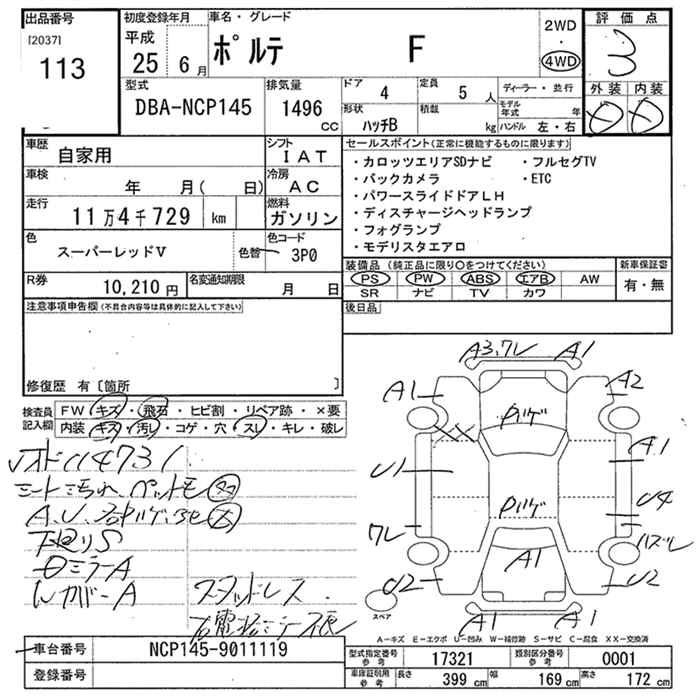 出品番号
[2037]
113
初度登録年月
平成
25 6 月
車名・グレード
ポルテ F
2WD
4WD
評価点
3
外装 内装
型式
DBA-NCP145
排気量
1496
CC
ドア
4
定員
5 人
形状
ハッチB
積載
kg
ディーラー・並行
モデル年式 年
ハンドル 左・右
車歴
自家用
シフト
IAT
車検
年 月( 日)
冷房
AC
走行
11万4千729 km
燃料
ガソリン
色
スーパーレッドV
色替
色コード
3P0
R券
10,210 円
名変通知期限
月 日
セールスポイント(正常に機能するものに限ります)
・カロッツエリアSDナビ ・フルセグTV
・バックカメラ ・ETC
・パワースライドドアLH
・ディスチャージヘッドランプ
・フォグランプ
・モデリスタエアロ
装備品(純正品に限り○をつけてください)
PS PW ABS エアB AW
SR ナビ TV カワ
新車保証書
有・無
後日品
注意事項申告欄(不具合内容等は具体的に記入して下さい)
修復歴 有〔箇所 〕
検査員記入欄
FW キズ・飛石・ヒビ割・リペア跡・×要
内装 キズ・汚レ・コゲ・穴・スレ・キレ・破レ
シート汚れ
A、U、
下廻りS
ミラーA
カバーA
スタッドレス
A1
A1
A2
A1
U1
U4
U2
U2
A1
A1
A1
パハゲ
パハゲ
スペア
A-キズ E-エクボ U-凹み W-補修跡 S-サビ C-腐食 XX-交換済
車台番号
NCP145-9011119
登録番号
型式指定番号
参考
17321
類別区分番号
参考
0001
車庫証明用
参考
長さ
399 cm
幅
169 cm
高さ
172 cm